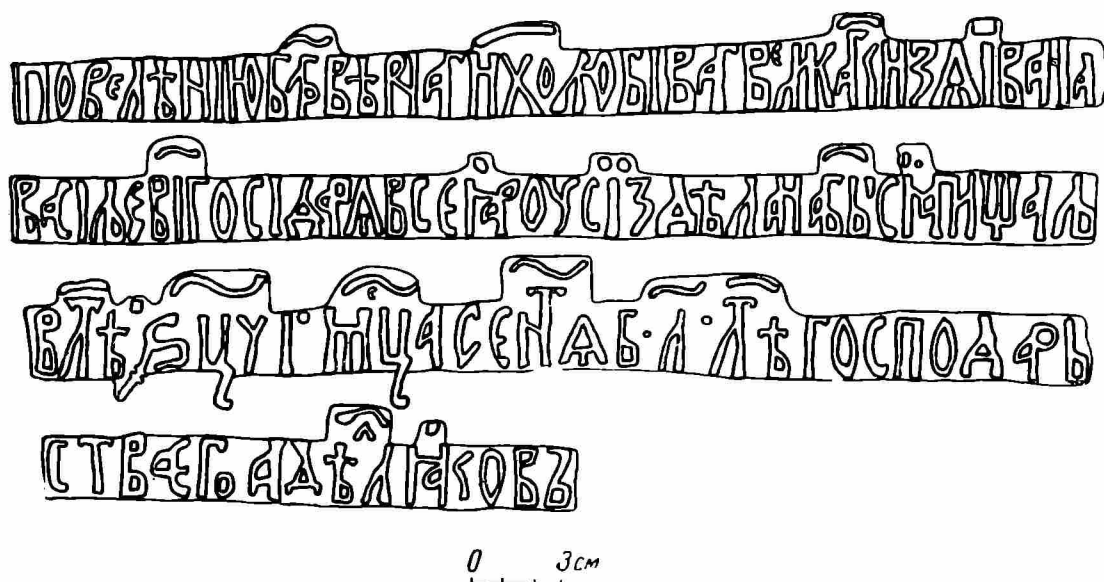 ПОВЕЛѢНIЮБЛГВѢРНАГИХОЛЮБIВАГВЕЛКАГКНЗАIВАНА
ВАСIЛЬЕВIГОСПДАРАВСЕꙖРОУСIЗДѢЛАНАБЫСIАПИЩАЛЬ
ВЛѢТ҂ЅЦЧГ·МЦАСЕНТѦБ·Л·ЛѢТГОСПОДАРЬ
СТВЕГОАДѢЛЛꙖКОВЪ
0 3см